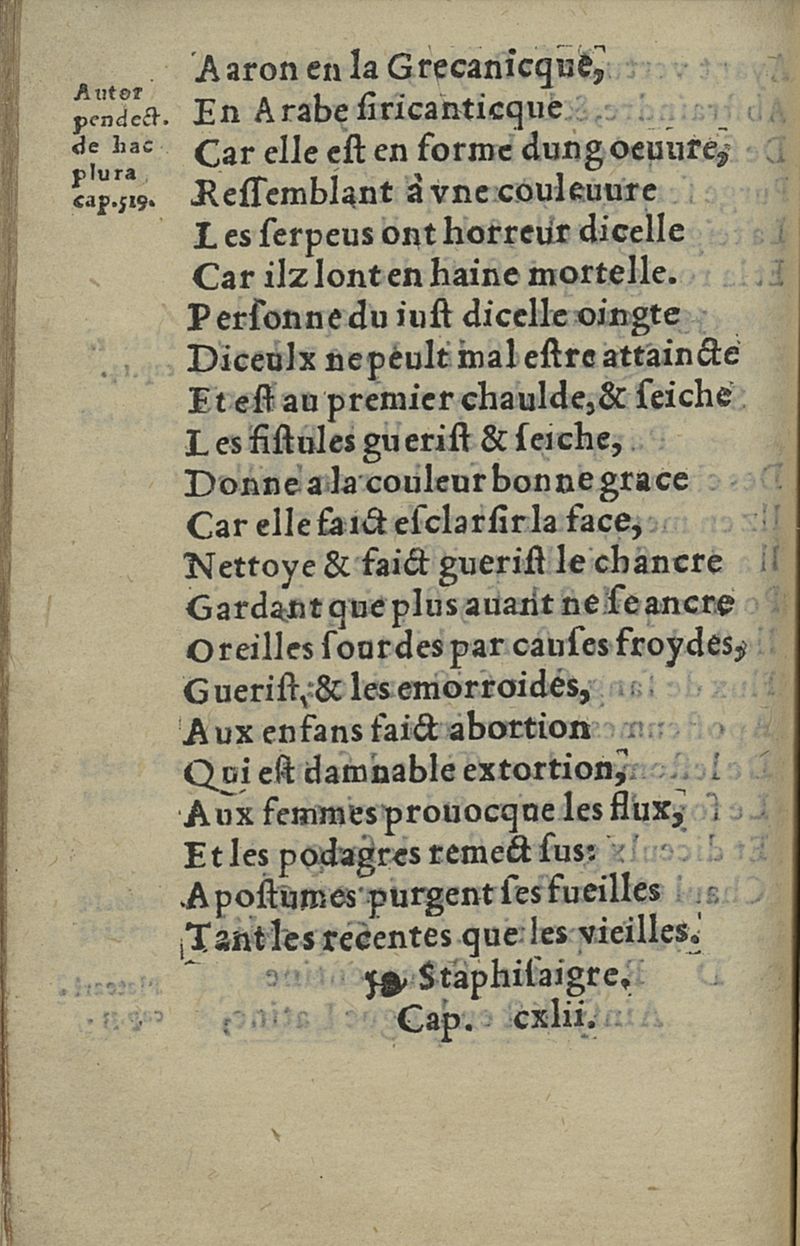 Autor
pendect.
de hac
plura
cap.519.
Aaron en la Grecanicque,
En Arabe ſiricanticque
Car elle eſt en forme dung oeuure,
Reſſemblant à vne couleuure
Les ſerpeus ont horreur dicelle
Car ilz lont en haine mortelle.
Perſonne du iuſt dicelle oingte
Diceulx ne peult mal eſtre attaincte
Et eſt au premier chaulde, & ſeiche
Les fiſtules gueriſt & ſeiche,
Donne a la couleur bonne grace
Car elle faict eſclarſir la face,
Nettoye & faict gueriſt le chancre
Gardant que plus auant ne ſe ancre
Oreilles ſourdes par cauſes froydes,
Gueriſt, & les emorroides,
Aux enfans faict abortion
Qui eſt damnable extortion,
Aux femmes prouocque les flux,
Et les podagres remect ſus:
Apoſtumes purgent ſes fueilles
Tant les recentes que les vieilles.
Staphiſaigre,
Cap. cxlii.